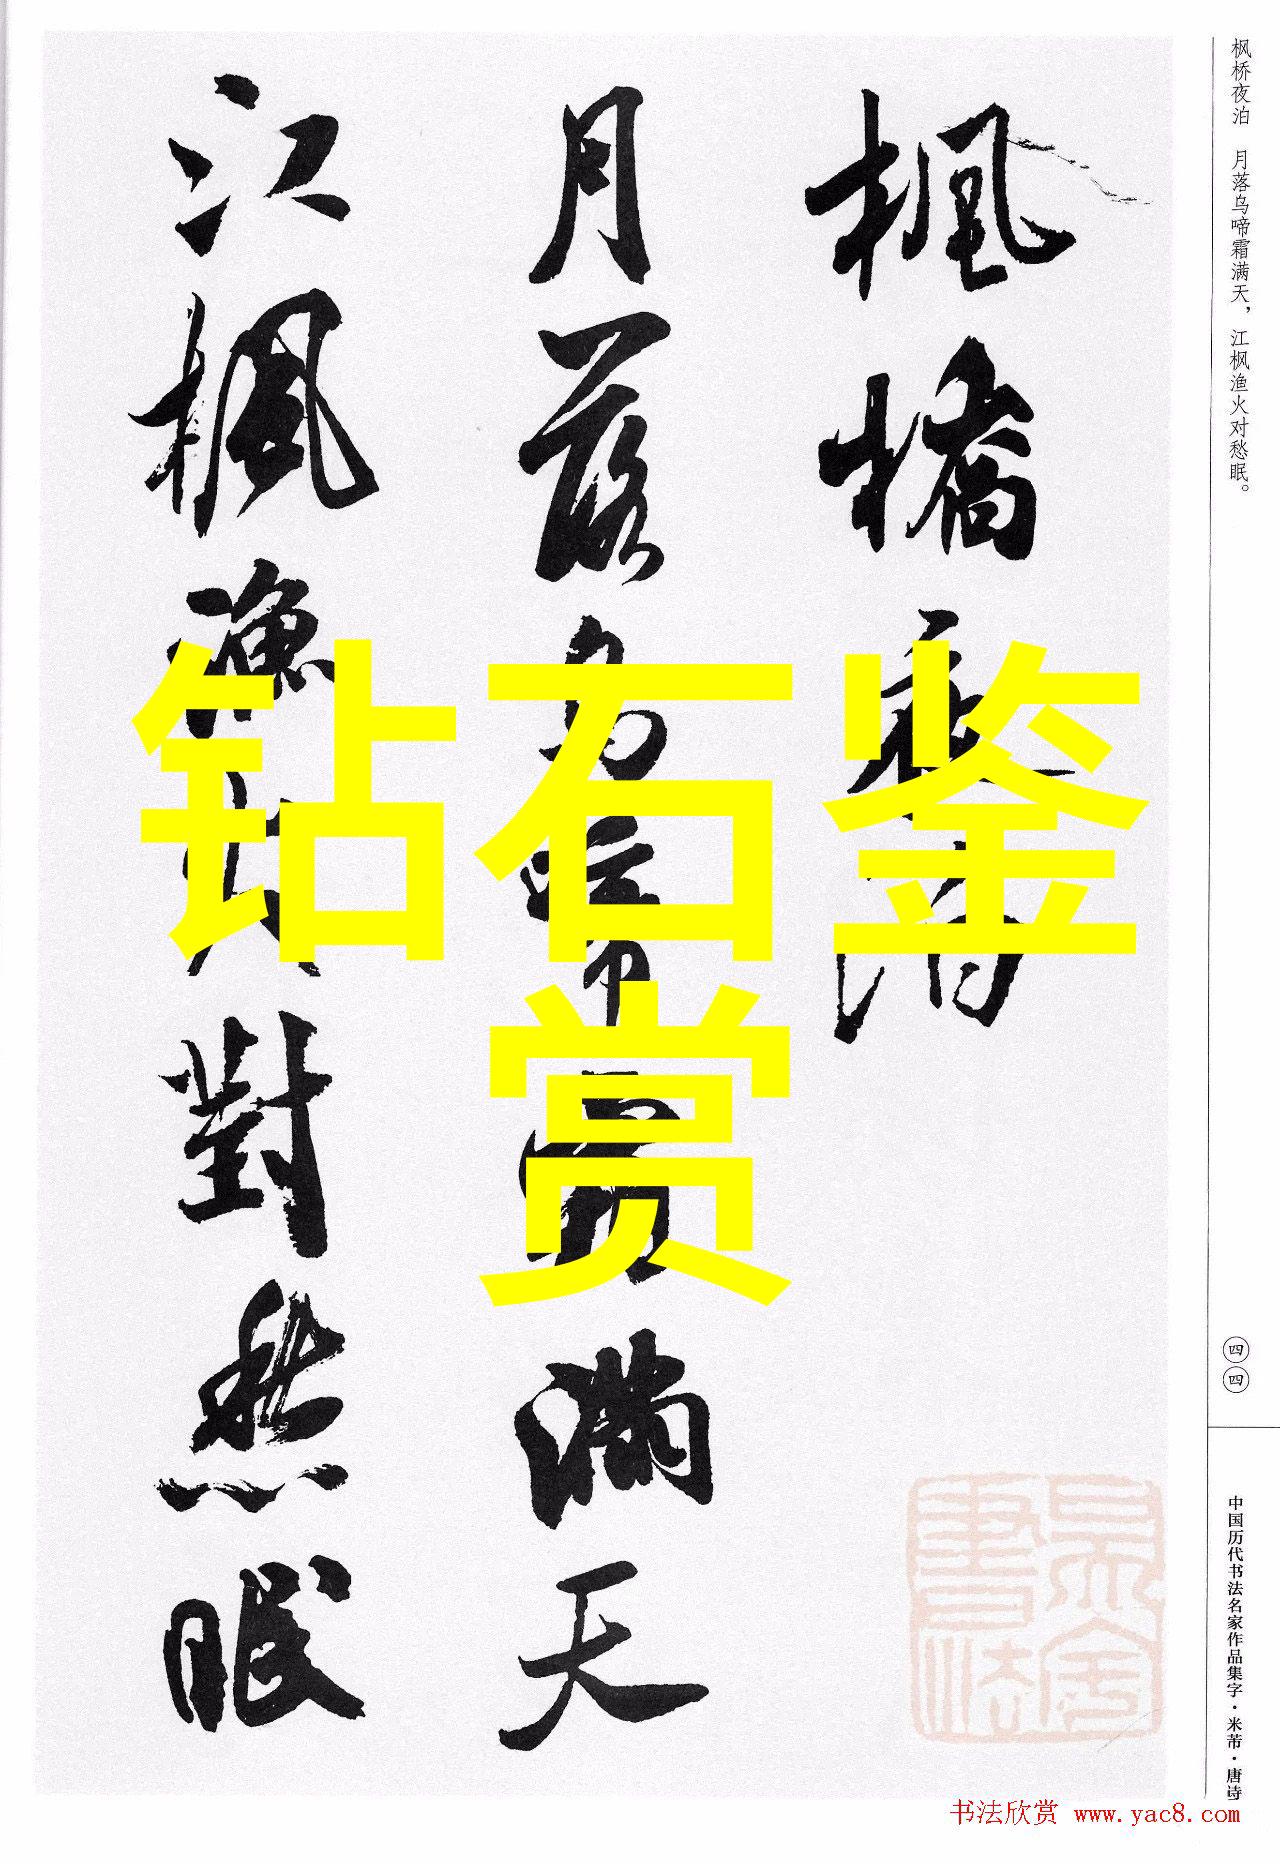 枫桥夜泊 月落乌啼霜满天，江枫渔火对愁眠。
楓橋夜泊
月落烏啼霜滿天
江楓漁火對愁眠
钻石鉴
赏
四四
中国历代书法名家作品集字·米芾·唐诗
书法欣赏 www.yac8.com